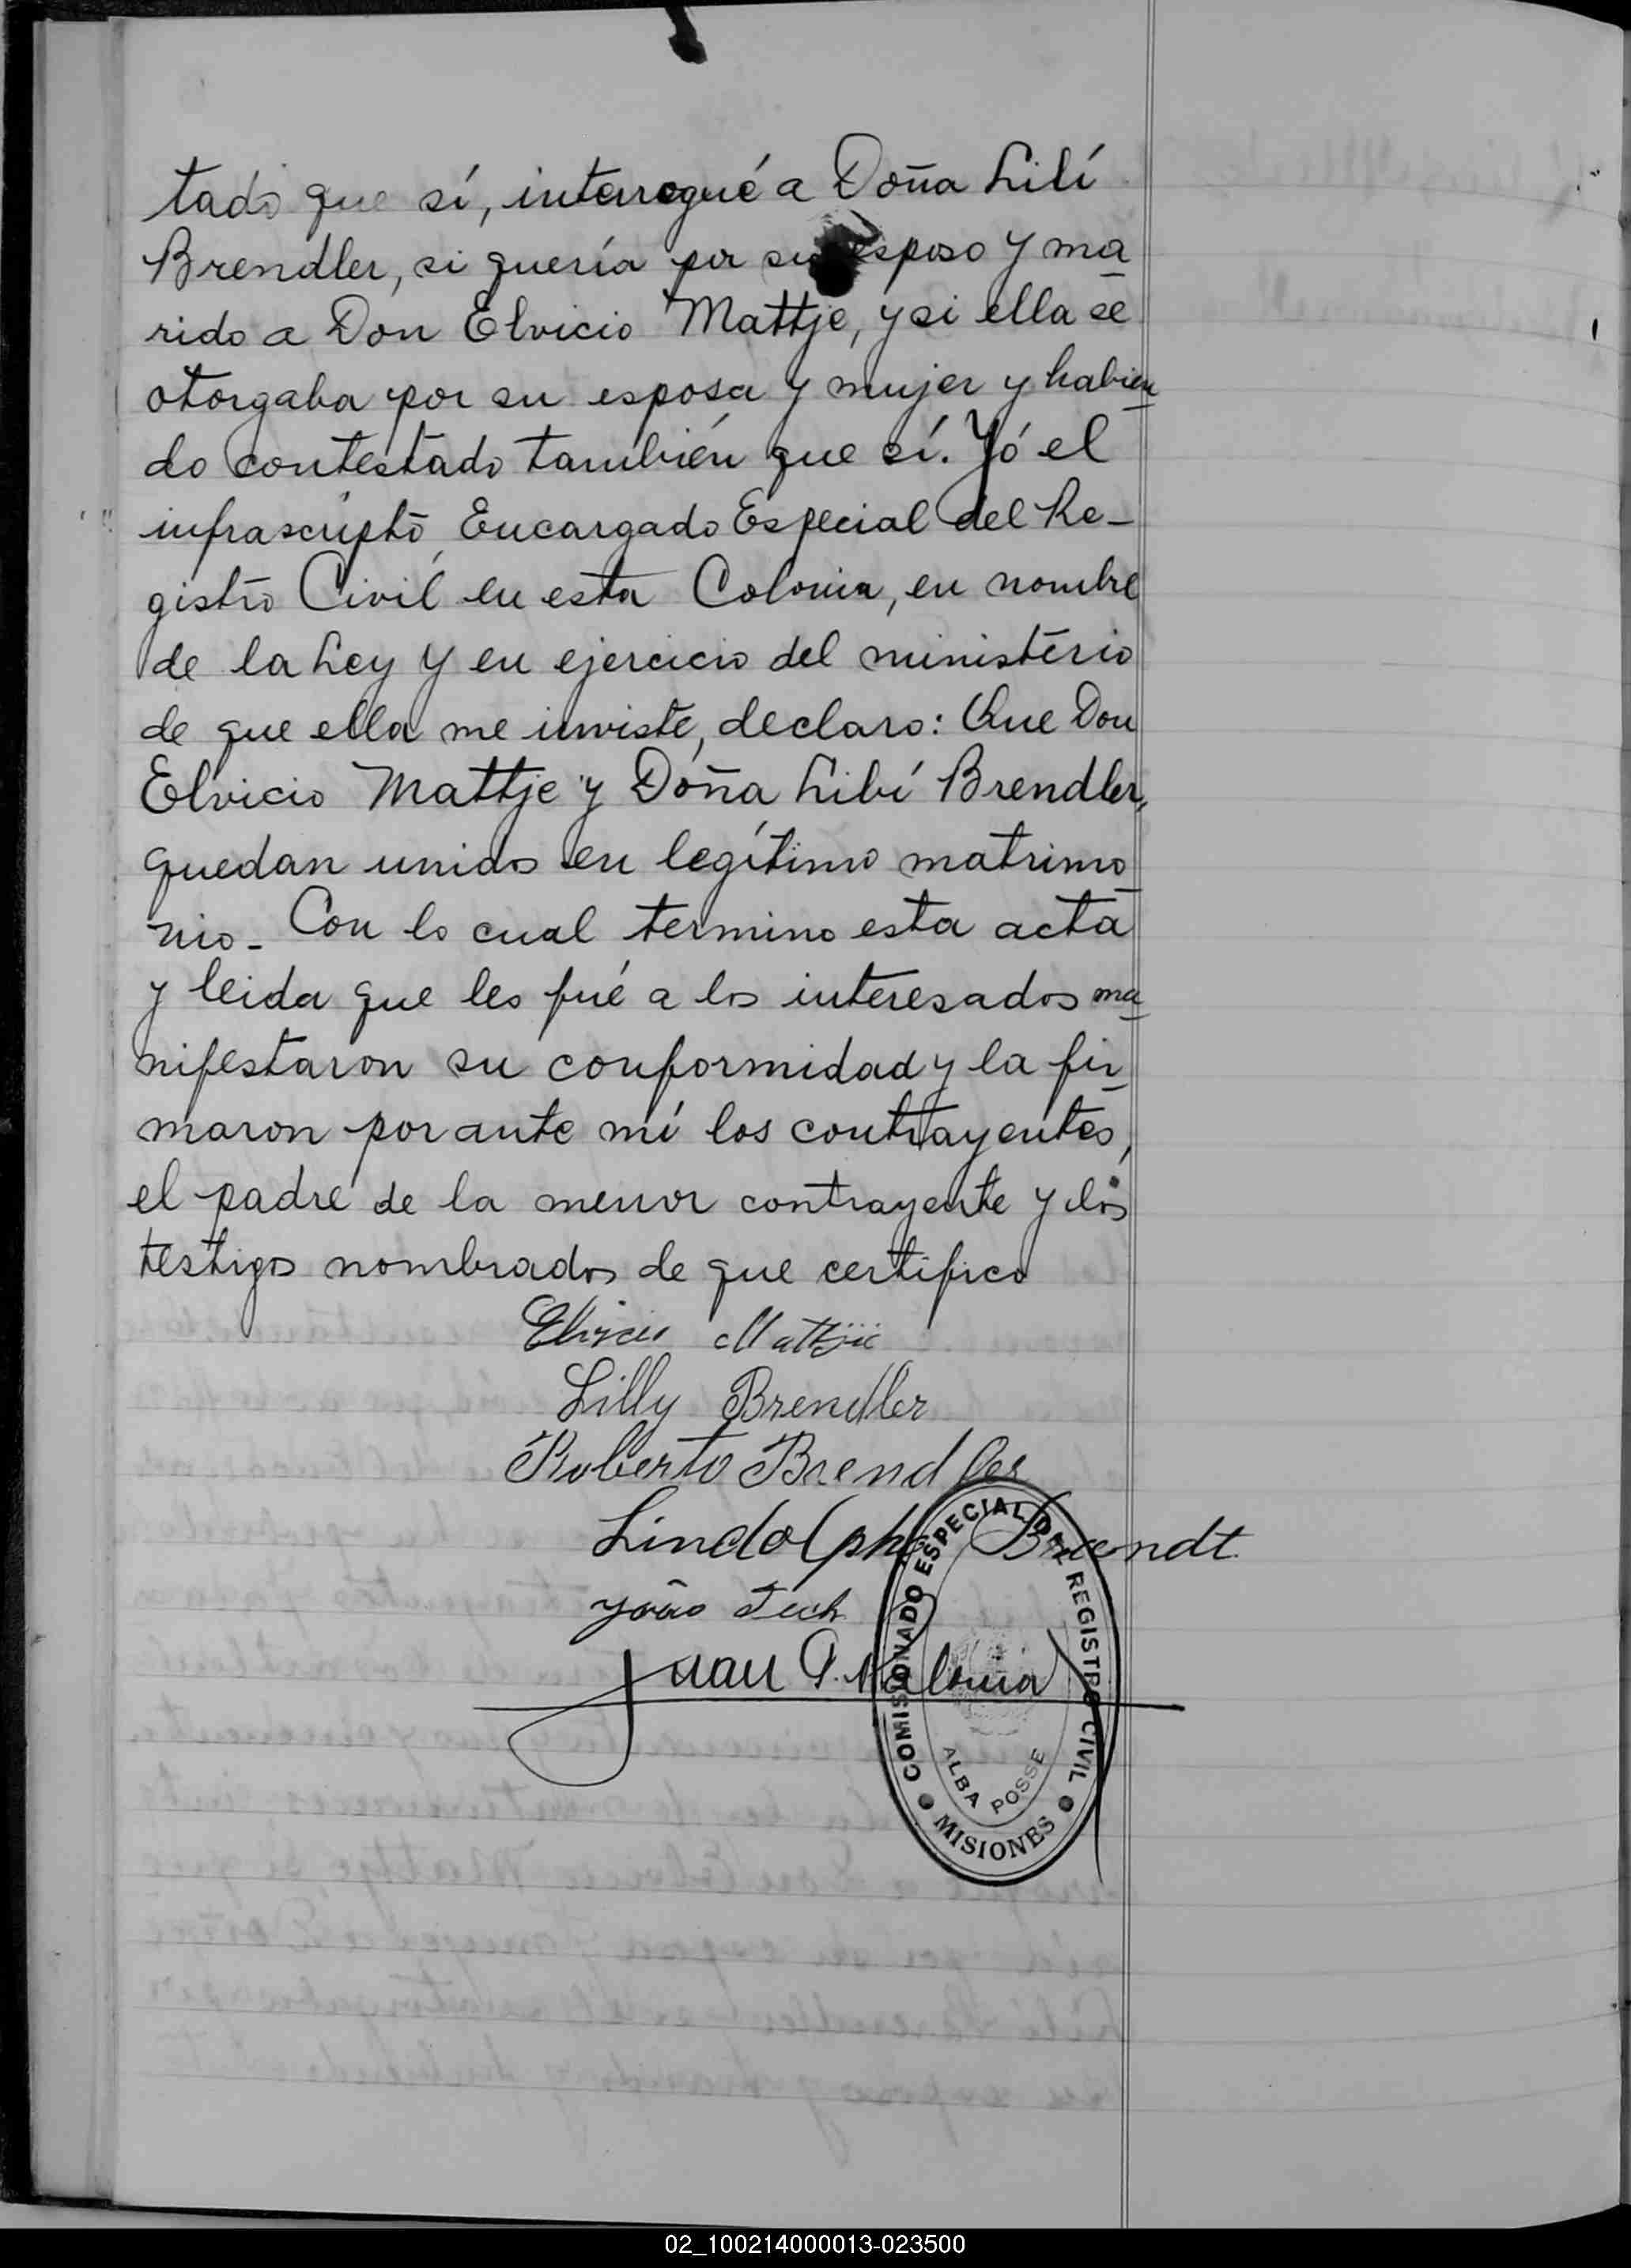 tado que sí, interrogué a Doña Lilí
Brendler, si quería por su esposo y ma
rido a Don Elvicio Mattje, y si ella se
otorgaba por su esposa y mujer y habien
do contestado también que sí. Yó el
infrascripto Encargado Especial del Re-
gistro Civíl en esta Colonia, en nombre
de la Ley y en ejercicio del ministerio
de que ella me inviste, declaro: Que Don
Elvicio Mattje y Doña Lilí Brendler,
quedan unidos en legítimo matrimo
nio- Con lo cual termino esta acta
y leida que les fué a los interesados ma
nifestaron su conformidad y la fir
maron por ante mí los contrayentes,
el padre de la menor contrayente y los
testigos nombrados de que certifico
Elvicio Mattjie
Lilly Brendler
Roberto Brendler
Lindolpho Brendt
João
Juan P.
COMISIONADO ESPECIAL DEL REGISTRO CIVIL
ALBA POSSE
MISIONES
02_100214000013-023500